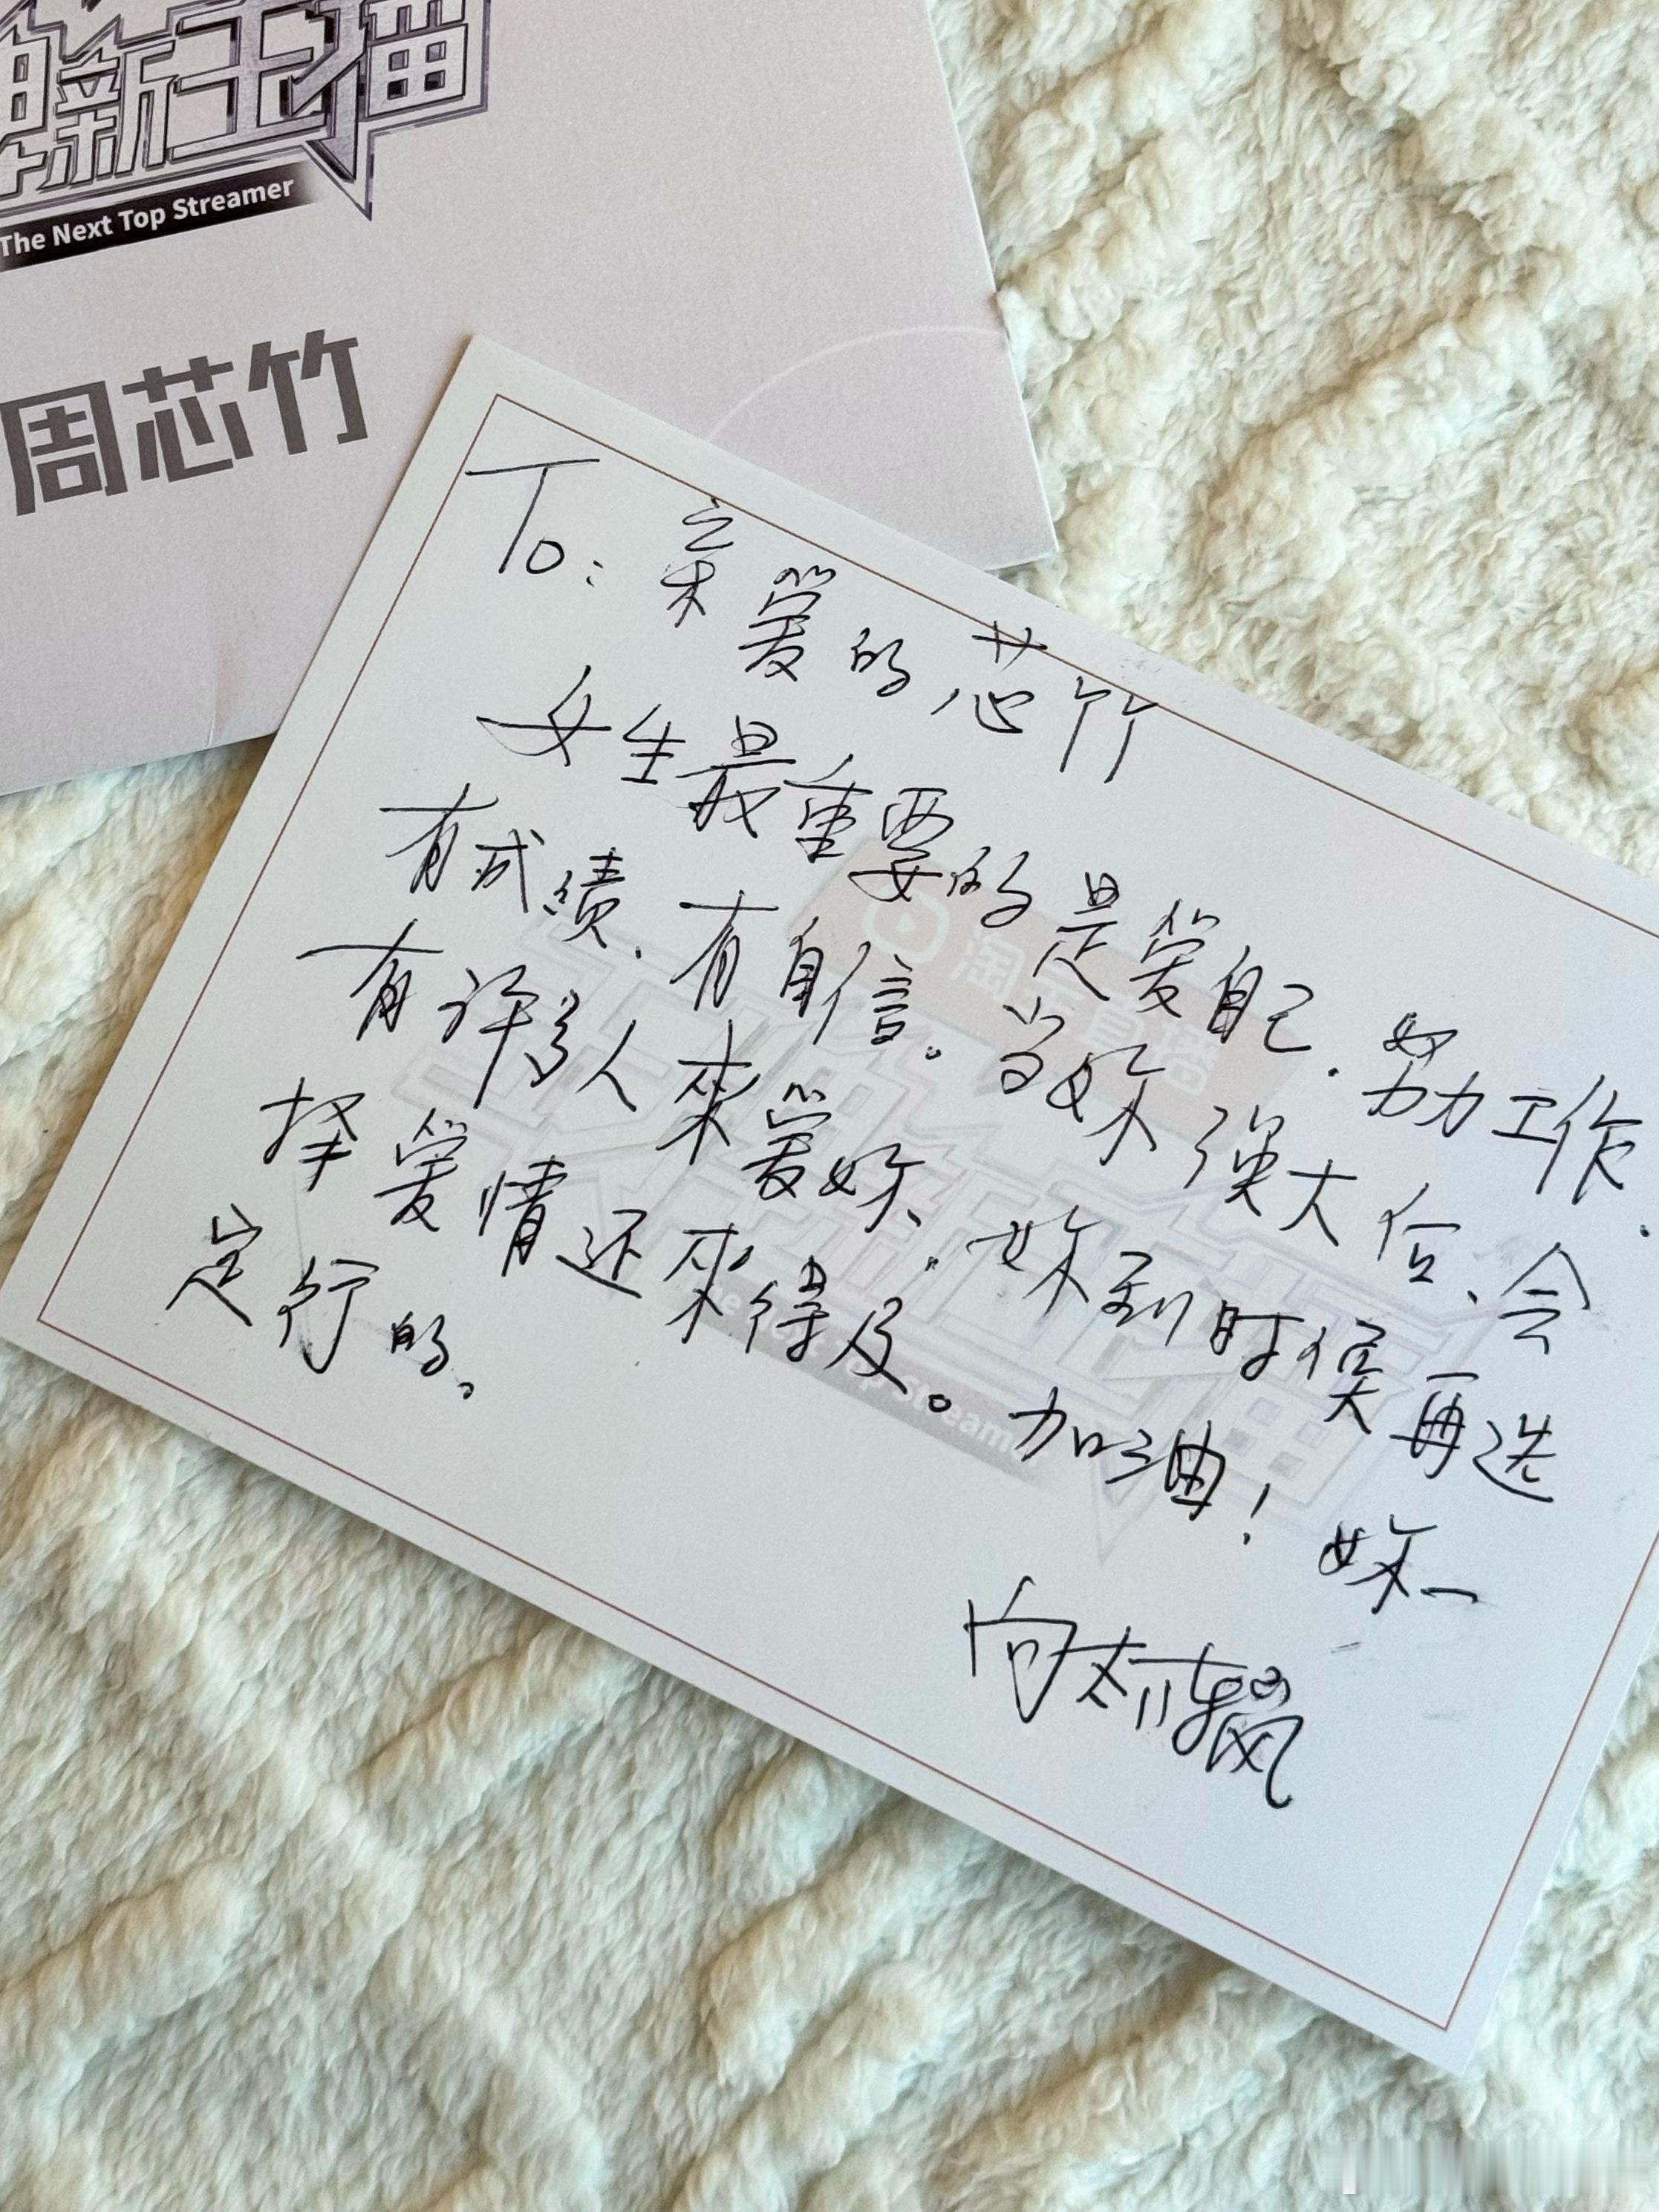 新主播
The Next Top Streamer
周芯竹
To: 亲爱的芯竹
女生最重要的是爱自己. 努力工作.
有成绩. 有自信。当妳强大后、会
有许多人來爱妳. 妳到时候再选
择爱情还來得及。加油! 妳一
定行的。
向太
淘宝直播